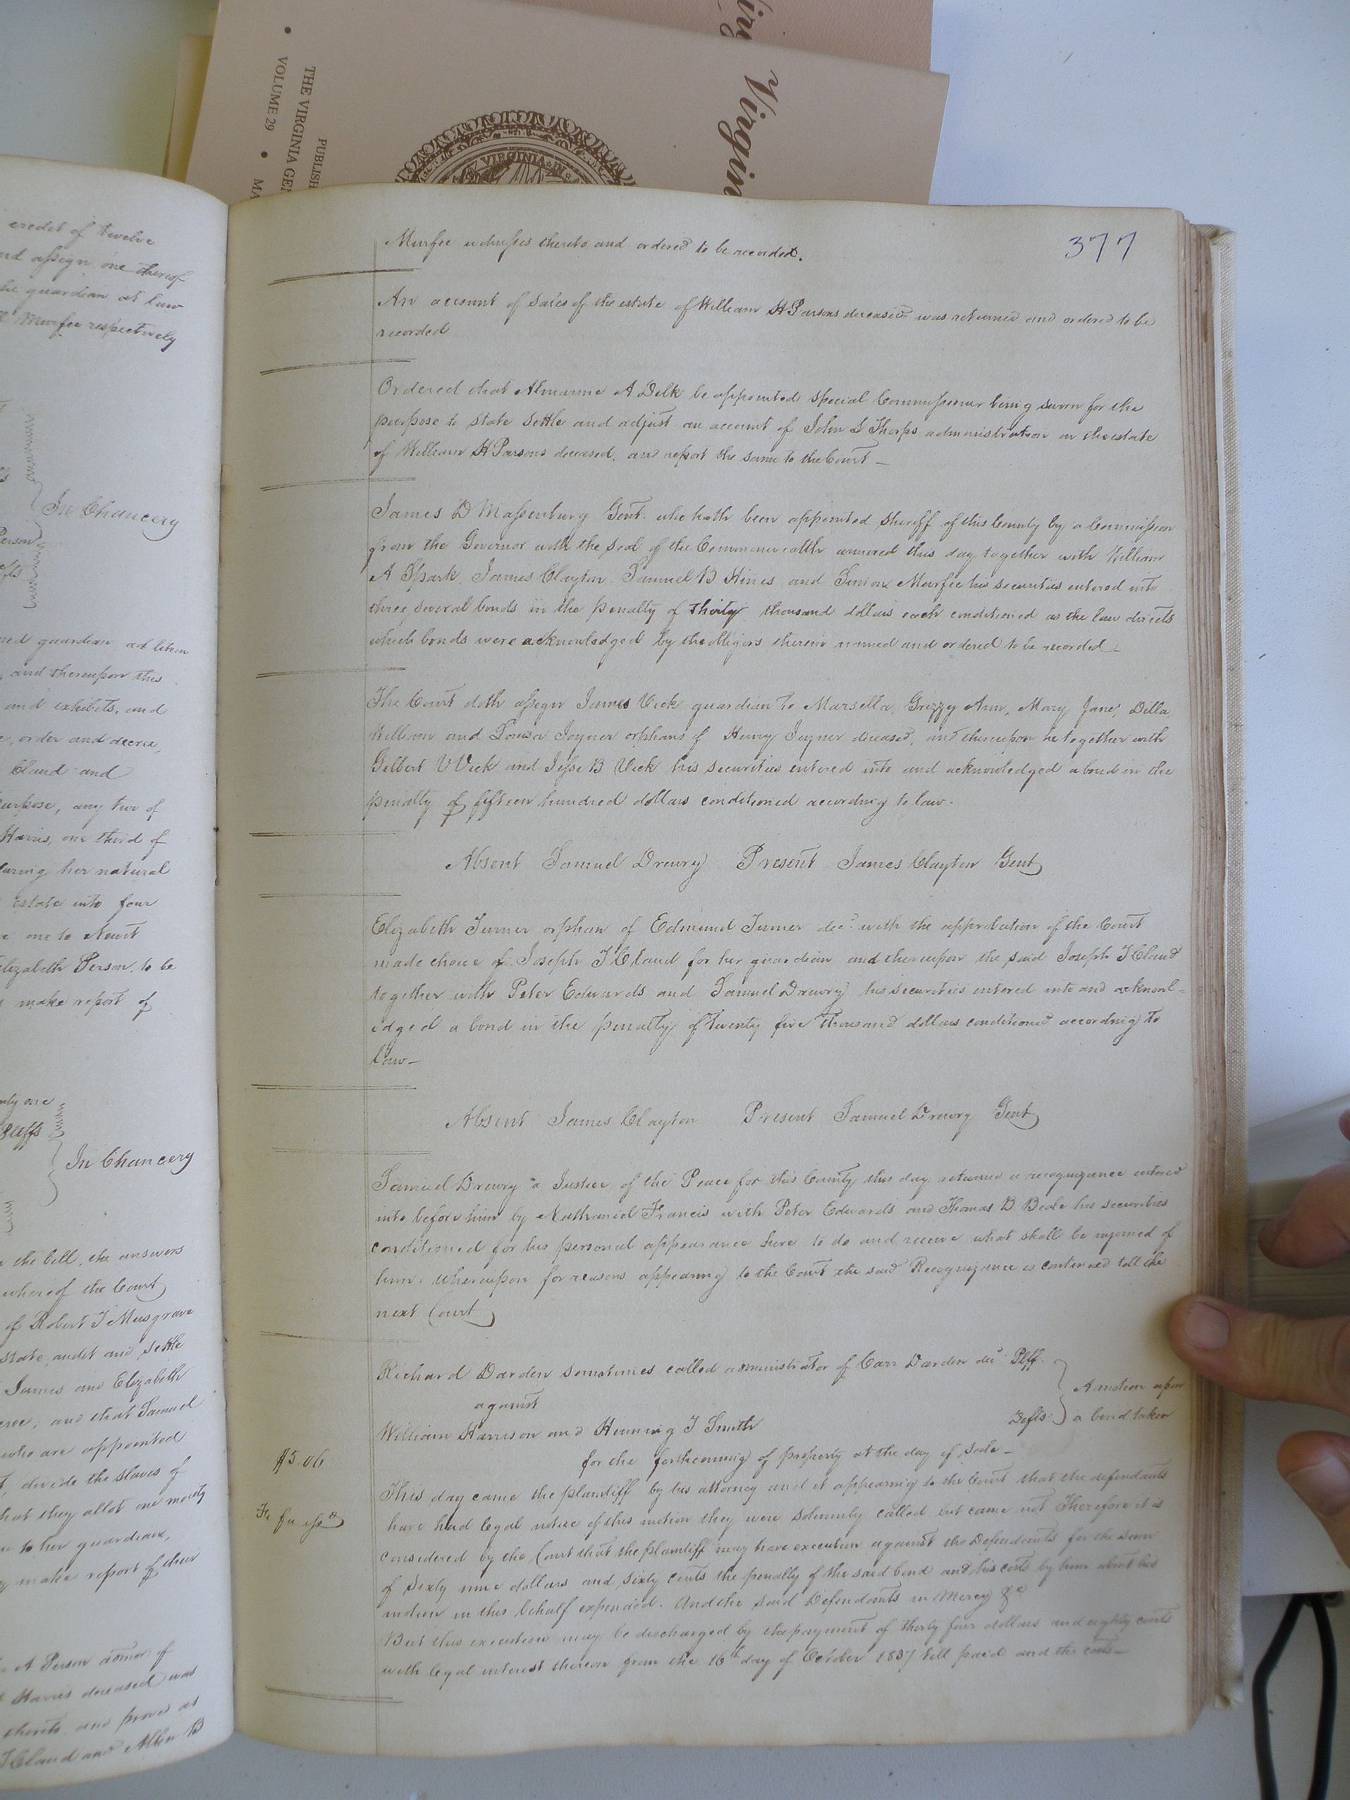 Virgin
PUBLISH
THE VIRGINIA GE
• VOLUME 29 • MA
VIRGINIA
credit of twelve
and assign one thereof
the guardian at law
Murfee respectively
In Chancery
Person
guardian ad litem
and thereupon this
and exhibits, and
order and decree,
Claud and
purpose, any two of
Harris, one third of
during her natural
estate into four
one to Newit
Elizabeth Person, to be
make report of
In Chancery
the bill, the answers
whereof the Court
of Robert T Musgrave
state, audit and settle
James and Elizabeth
and that Samuel
who are appointed
divide the slaves of
that they allot one moiety
to her guardian,
make report of their
A Person
Harris deceased was
thereto and proved as
Claud and
377
Murfee witnesses thereto and ordered to be recorded.
An account of Sales of the estate of William H Parsons deceased was returned and ordered to be
recorded
Ordered that A Delk be appointed Special Commissioner being sworn for the
purpose to state settle and adjust an account of John G Thorps administration on the estate
of William H Parsons deceased, and report the same to the Court —
James D Massenburg Gent. who hath been appointed Sheriff of this County by a Commission
from the Governor with the seal of the Commonwealth annexed this day together with William
A Spark, James Clayton Samuel B Hines and Simon Murfee his securities entered into
three several bonds in the penalty of thirty thousand dollars each conditioned as the law directs
which bonds were acknowledged by the obligors therein named and ordered to be recorded —
The Court doth assign James Vick guardian to Marsella, Grizzy Ann, Mary Jane, Della,
William and Louisa Joyner orphans of Henry Joyner deceased, and thereupon he together with
Gilbert V Vick and Jesse B Vick his securities entered into and acknowledged a bond in the
penalty of fifteen hundred dollars conditioned according to law.
Absent Samuel Drewry Present James Clayton Gent
Elizabeth Turner orphan of Edmund Turner decd with the approbation of the Court
made choice of Joseph T Claud for her guardian and thereupon the said Joseph T Claud
together with Peter Edwards and Samuel Drewry his securities entered into and acknowl-
edged a bond in the penalty of twenty five thousand dollars conditioned according to
law —
Absent James Clayton Present Samuel Drewry Gent
Samuel Drewry a Justice of the Peace for this County this day returned a recognizance entered
into before him by Nathaniel Francis with Peter Edwards and Thomas B Beale his securities
conditioned for his personal appearance here to do and receive what shall be enjoined of
him. Whereupon for reasons appearing to the Court the said Recognizance is continued till the
next Court
Richard Darden sometimes called administrator of Carr Darden decd Pltff.
against
A motion upon
William Harrison and Henning T Smith Defts.
a bond taken
$5.06
for the forthcoming of property at the day of sale —
This day came the plaintiff by his attorney and it appearing to the Court that the defendants
have had legal notice of this motion they were solemnly called but came not Therefore it is
considered by the Court that the plaintiff may have execution against the Defendants for the sum
of Sixty nine dollars and sixty cents the penalty of the said bond and his costs by him about his
motion in this behalf expended. And the said Defendants in Mercy &c
But this execution may be discharged by the payment of thirty four dollars and eighty cents
with legal interest thereon from the 16th day of October 1837 till paid and the costs —